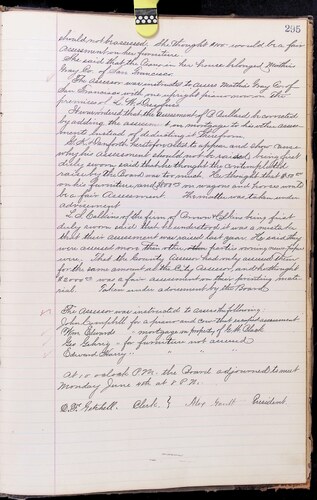 295
should not be assessed. She thought $100 would be a fair
assessment on her furniture.
She said that the Piano in her house belonged Mathias
Gray Co. of San Francisco
The Assessor was instructed to assess Mathias Gray Co. of
San Francisco, with one upright piano now on the
premises of L. W.
It was ordered that the assessment of be corrected
by adding the assessment on mortgage to his other assess-
ments instead of deducting it therefrom.
G. K. Danforth, cited to appear and show cause
why his assessment should not be raised, being first
duly sworn said that he thought the contemplated
raise by the Board was too much. He thought that
on his furniture, and on wagons and horses would
be a fair assessment. The matter was taken under
advisement
L. J. Collins of the firm of Collins being first
duly sworn said that he understood it was a mistake
that their assessment was raised last year. He said they
were assessed more than other parties owning more property
were, That the County Assessor had only assessed them
for the same amount as the City Assessor, and he thought
$2000 was a fair assessment on their printing mate-
rial. Taken under advisement by the Board
The Assessor was instructed to assess the following
John Campbell for a piano and cow that escaped assessment
Wm Edwards " mortgage on property of E. H. Clark
Geo Gehring " for furniture not assessed
Edward " " "
At 10 o'clock P.M. the Board adjourned to meet
Monday June at 8 P.M.
D. F. Getchell. Clerk } Alex President